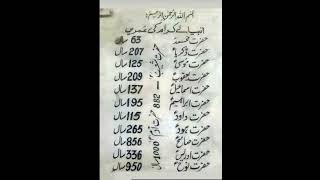 بسم اللہ الرحمن الرحیم
انبیائے کرام کی عمریں
حضرت محمدؐ 63 سال
حضرت زکریاؑ 207 سال
حضرت موسیٰؑ 125 سال
حضرت یعقوبؑ 209 سال
حضرت اسماعیلؑ 137 سال
حضرت ابراہیمؑ 195 سال
حضرت داودؑ 115 سال
حضرت ہودؑ 265 سال
حضرت صالحؑ 856 سال
حضرت ادریسؑ 336 سال
حضرت نوحؑ 950 سال
حضرت شعیبؑ - 882
حضرت آدمؑ 1000 سال